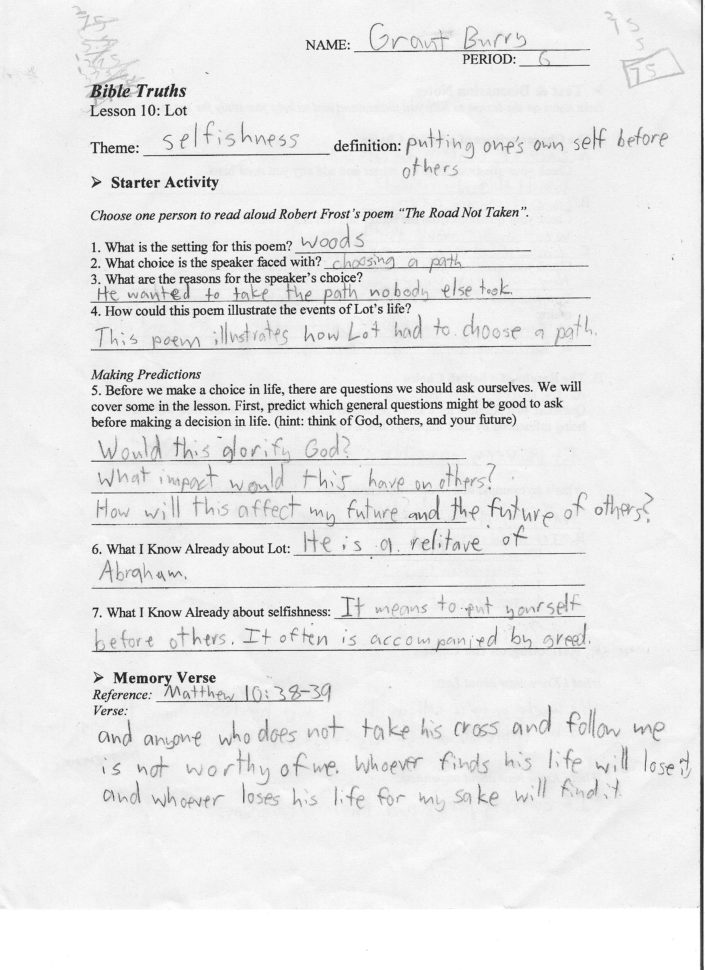 75
75
5
75
NAME: Grant Burry
PERIOD: 6
Bible Truths
Lesson 10: Lot
Theme: selfishness definition: putting one's own self before
others
➤ Starter Activity
Choose one person to read aloud Robert Frost's poem “The Road Not Taken”.
1. What is the setting for this poem? woods
2. What choice is the speaker faced with? choosing a path
3. What are the reasons for the speaker's choice?
He wanted to take the path nobody else took.
4. How could this poem illustrate the events of Lot's life?
This poem illustrates how Lot had to choose a path.
Making Predictions
5. Before we make a choice in life, there are questions we should ask ourselves. We will
cover some in the lesson. First, predict which general questions might be good to ask
before making a decision in life. (hint: think of God, others, and your future)
Would this glorify God?
What impact would this have on others?
How will this affect my future and the future of others?
6. What I Know Already about Lot: He is a relitave of
Abraham.
7. What I Know Already about selfishness: It means to put yourself
before others. It often is accompanied by greed.
➤ Memory Verse
Reference: Matthew 10:38-39
Verse:
and anyone who does not take his cross and follow me
is not worthy of me. Whoever finds his life will lose it,
and whoever loses his life for my sake will find it.